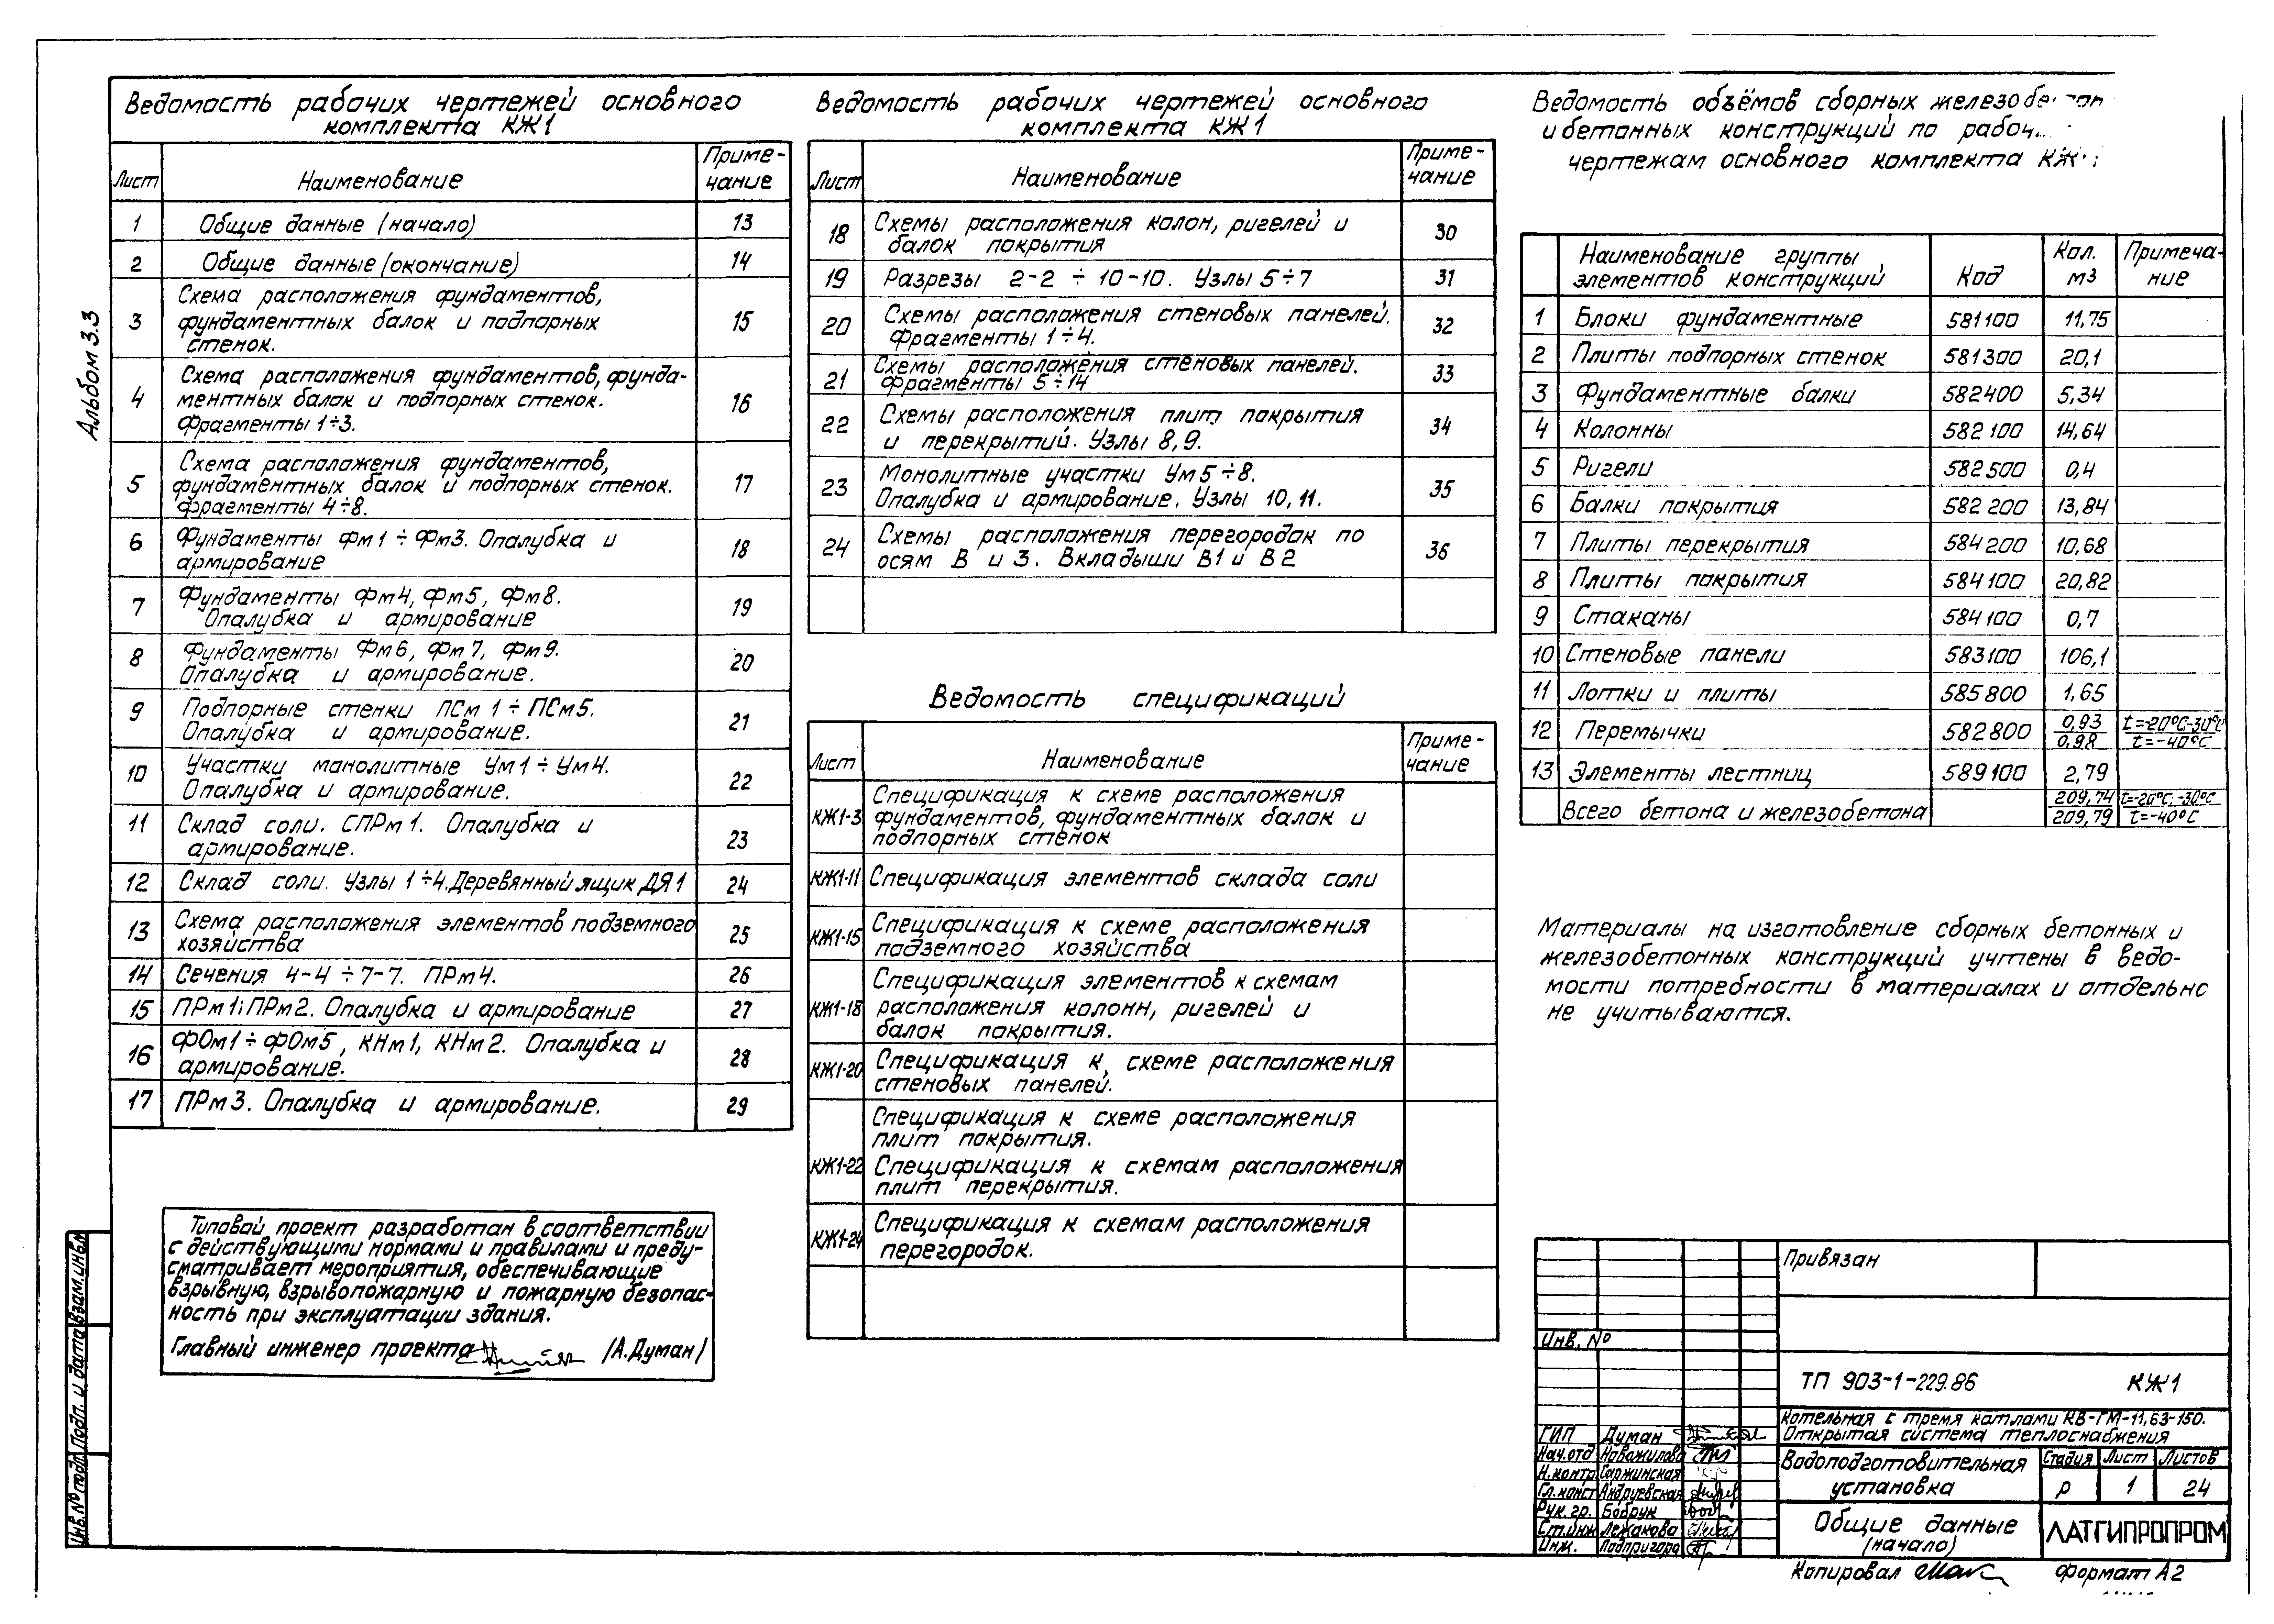 Альбом 3.3
Ведомость рабочих чертежей основного
комплекта КЖ1
Лист Наименование Приме-
чание
1 Общие данные (начало) 13
2 Общие данные (окончание) 14
3 Схема расположения фундаментов, 15
фундаментных балок и подпорных
стенок.
4 Схема расположения фундаментов, фунда- 16
ментных балок и подпорных стенок.
Фрагменты 1÷3.
5 Схема расположения фундаментов, 17
фундаментных балок и подпорных стенок.
фрагменты 4÷8.
6 Фундаменты Фм1 ÷ Фм3. Опалубка и 18
армирование
7 Фундаменты Фм4, Фм5, Фм8. 19
Опалубка и армирование
8 Фундаменты Фм6, Фм7, Фм9. 20
Опалубка и армирование.
9 Подпорные стенки ПСм 1 ÷ ПСм5. 21
Опалубка и армирование.
10 Участки монолитные Ум1 ÷ Ум4. 22
Опалубка и армирование.
11 Склад соли. СПРм1. Опалубка и 23
армирование.
12 Склад соли. Узлы 1÷4. Деревянный ящик ДЯ1 24
13 Схема расположения элементов подземного 25
хозяйства
14 Сечения 4-4 ÷ 7-7. ПРм4. 26
15 ПРм1; ПРм2. Опалубка и армирование 27
16 ФОм1 ÷ ФОм5, КНм1, КНм2. Опалубка и 28
армирование.
17 ПРм3. Опалубка и армирование. 29
Типовой проект разработан в соответствии
с действующими нормами и правилами и преду-
сматривает мероприятия, обеспечивающие
взрывную, взрывопожарную и пожарную безопас-
ность при эксплуатации здания.
Главный инженер проекта /А.Думан/
Взам.инв.№
Подп. и дата
Инв.№ подл.
Ведомость рабочих чертежей основного
комплекта КЖ1
Лист Наименование Приме-
чание
18 Схемы расположения колон, ригелей и 30
балок покрытия
19 Разрезы 2-2 ÷ 10-10. Узлы 5÷7 31
20 Схемы расположения стеновых панелей. 32
Фрагменты 1÷4.
21 Схемы расположения стеновых панелей. 33
фрагменты 5÷14
22 Схемы расположения плит покрытия 34
и перекрытий. Узлы 8, 9.
23 Монолитные участки Ум5÷8. 35
Опалубка и армирование. Узлы 10, 11.
24 Схемы расположения перегородок по 36
осям В и 3. Вкладыши В1 и В2
Ведомость спецификаций
Лист Наименование Приме-
чание
КЖ1-3 Спецификация к схеме расположения
фундаментов, фундаментных балок и
подпорных стенок
КЖ1-11 Спецификация элементов склада соли
КЖ1-15 Спецификация к схеме расположения
подземного хозяйства
КЖ1-18 Спецификация элементов к схемам
расположения колонн, ригелей и
балок покрытия.
КЖ1-20 Спецификация к схеме расположения
стеновых панелей.
КЖ1-22 Спецификация к схеме расположения
плит покрытия.
Спецификация к схемам расположения
плит перекрытия.
КЖ1-24 Спецификация к схемам расположения
перегородок.
Ведомость объёмов сборных
и бетонных конструкций по
чертежам основного комплекта
Наименование группы элементов конструкций Код Кол. м3 Примеча-
ние
1 Блоки фундаментные 581100 11,75
2 Плиты подпорных стенок 581300 20,1
3 Фундаментные балки 582400 5,34
4 Колонны 582 100 14,64
5 Ригели 582 500 0,4
6 Балки покрытия 582 200 13,84
7 Плиты перекрытия 584 200 10,68
8 Плиты покрытия 584 100 20,82
9 Стаканы 584 100 0,7
10 Стеновые панели 583100 106,1
11 Лотки и плиты 585 800 1,65
12 Перемычки 582 800 0,93 t=-20°C-30°C
0,98 t=-40°C
13 Элементы лестниц 589 100 2,79
Всего бетона и железобетона 209,74 t=-20°C; -30°C
209,79 t=-40°C
Материалы на изготовление сборных бетонных и
железобетонных конструкций учтены в ведо-
мости потребности в материалах и отдельно
не учитываются.
Привязан
Инв. №
ТП 903-1-229.86 КЖ1
Котельная с тремя котлами КВ-ГМ-11,63-150.
Открытая система теплоснабжения
ГИП Думан
Нач.отд Новожилова
Н.контр Саржинская
Гл.конст Андриевская
Рук. гр. Бобрук
Ст.инж Лежакова
Инж. Подпригора
Водоподготовительная
установка
Стадия Лист Листов
Р 1 24
Общие данные
(начало)
ЛАТГИПРОПРОМ
Копировал Формат А2